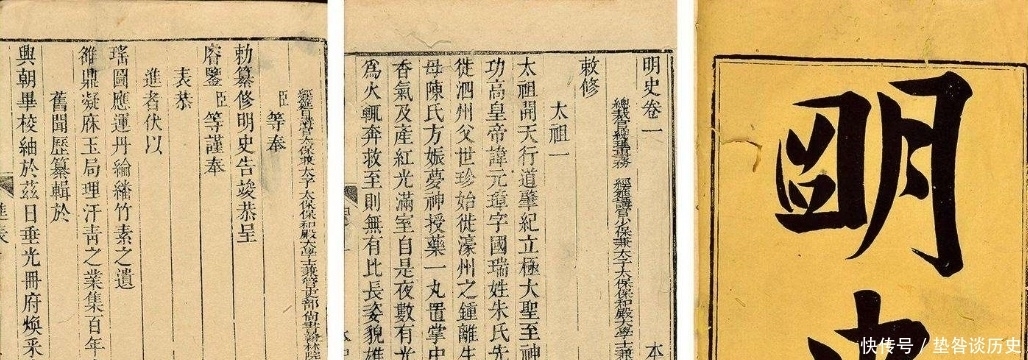 經筵日講官太保兼太子太保保和殿大學士兼管吏部尚書翰林院
臣等奉
勅纂修明史告竣恭呈
睿鑒臣等謹奉
表恭
進者伏以
瑤圖應運丹綸繙竹素之遺
雒鼎凝庥玉局理汗青之業集百年
舊聞歷纂輯於
興朝畢校紬於茲日垂光冊府煥釆
進表
明史卷一 本
敕修
太祖一
太祖開天行道肇紀立極大聖至神
功高皇帝諱元璋字國瑞姓朱氏先
徙泗州父世珍始徙濠州之鍾離生
母陳氏方娠夢神授藥一丸置掌中
香氣及產紅光滿室自是夜數有光
為火輒奔救至則無有比長姿貌雄
明
快传号／垫咎谈历史